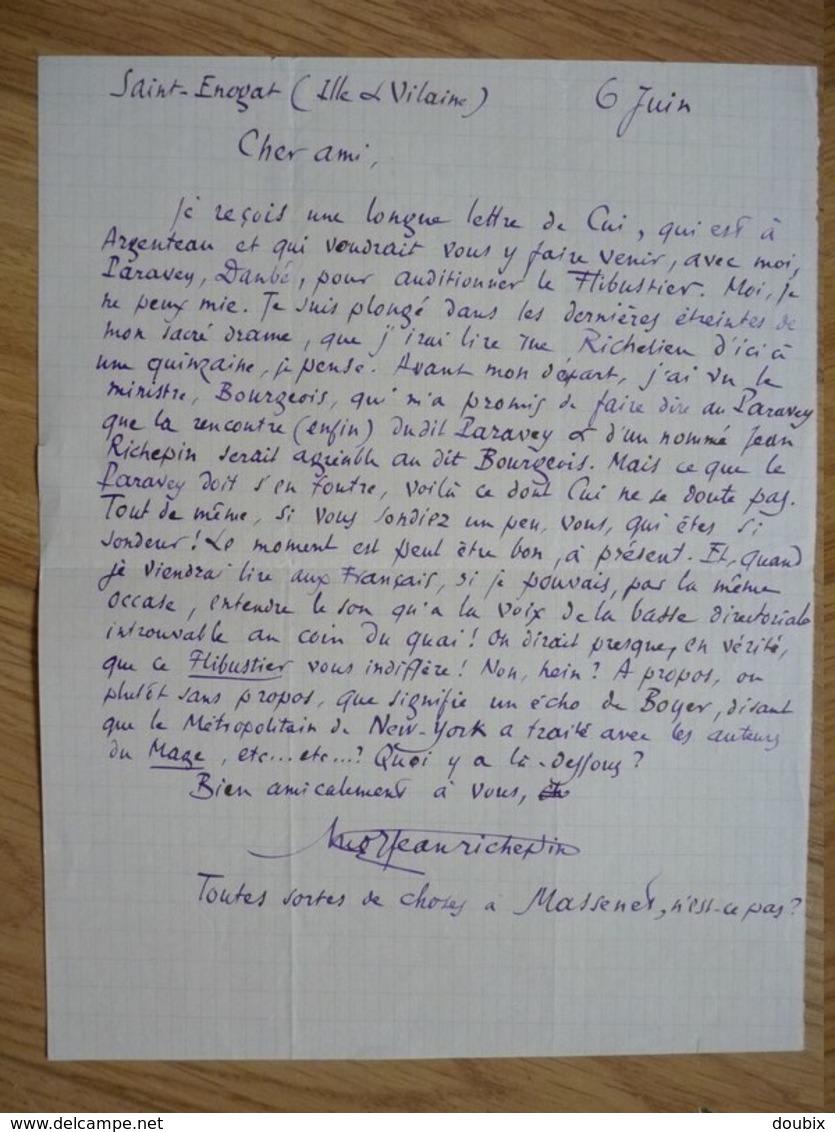 Saint-Enogat (Ille & Vilaine) 6 Juin
Cher ami,
Je reçois une longue lettre de Cui, qui est à
Argenteau et qui voudrait vous y faire venir, avec moi,
Paravey, Danbé, pour auditionner le Flibustier. Moi, je
ne peux mie. Je suis plongé dans les dernières étreintes de
mon sacré drame, que j'irai lire rue Richelieu d'ici à
une quinzaine, je pense. Avant mon départ, j'ai vu le
ministre, Bourgeois, qui m'a promis de faire dire au Paravey
que la rencontre (enfin) dudit Paravey & d'un nommé Jean
Richepin serait agréable au dit Bourgeois. Mais ce que le
Paravey doit s'en foutre, voilà ce dont Cui ne se doute pas.
Tout de même, si vous sondiez un peu, vous, qui êtes si
sondeur! Le moment est peut être bon, à présent. Et, quand
je viendrai lire aux Français, si je pouvais, par la même
occase, entendre le son qu'a la voix de la basse directoriale
introuvable au coin du quai! On dirait presque, en vérité,
que ce Flibustier vous indiffère! Non, hein? A propos, ou
plutôt sans propos, que signifie un écho de Boyer, disant
que le Métropolitain de New-York a traité avec les auteurs
du Mage, etc... etc...? Quoi y a là-dessous?
Bien amicalement à vous,
Jean richepin
Toutes sortes de choses à Massenet, n'est-ce pas?
delcampe.net
doubix